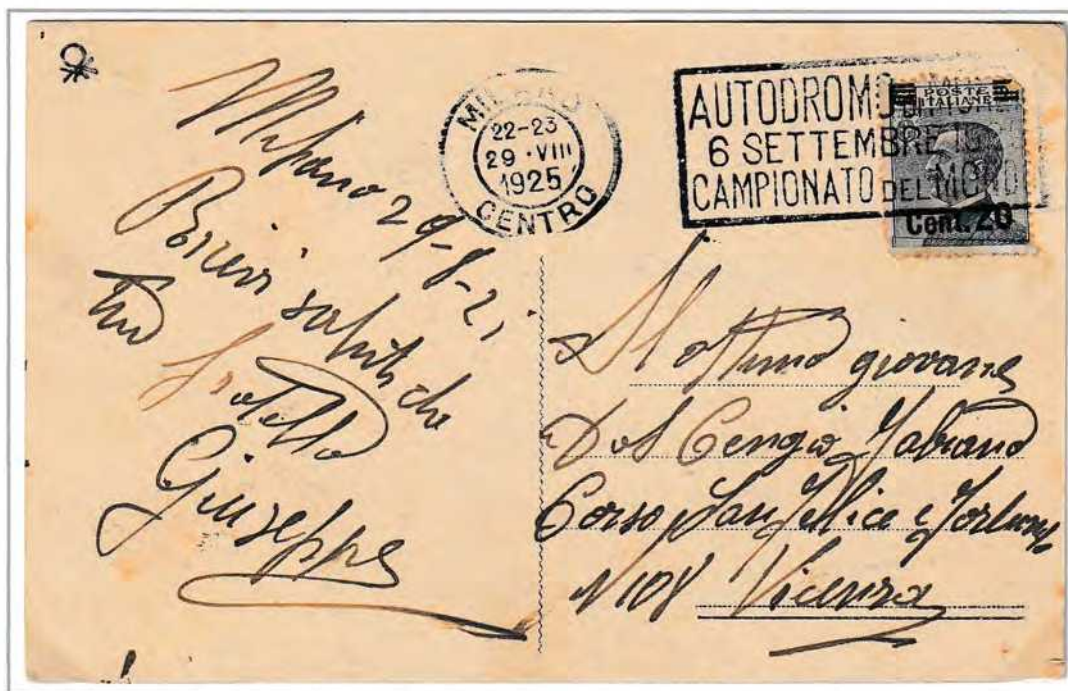 Milano 29-8-25
Ricevi saluti da
tuo
fratello
Giuseppe
MILANO
22-23
29·VIII
1925
CENTRO
AUTODROMO DI
6 SETTEMBRE 19
CAMPIONATO DEL MONDO
POSTE
ITALIANE
Cent. 20
Al ottimo giovane
Dal Cengio Fabiano
Corso San Felice e Fortunato
N 108 Vicenza